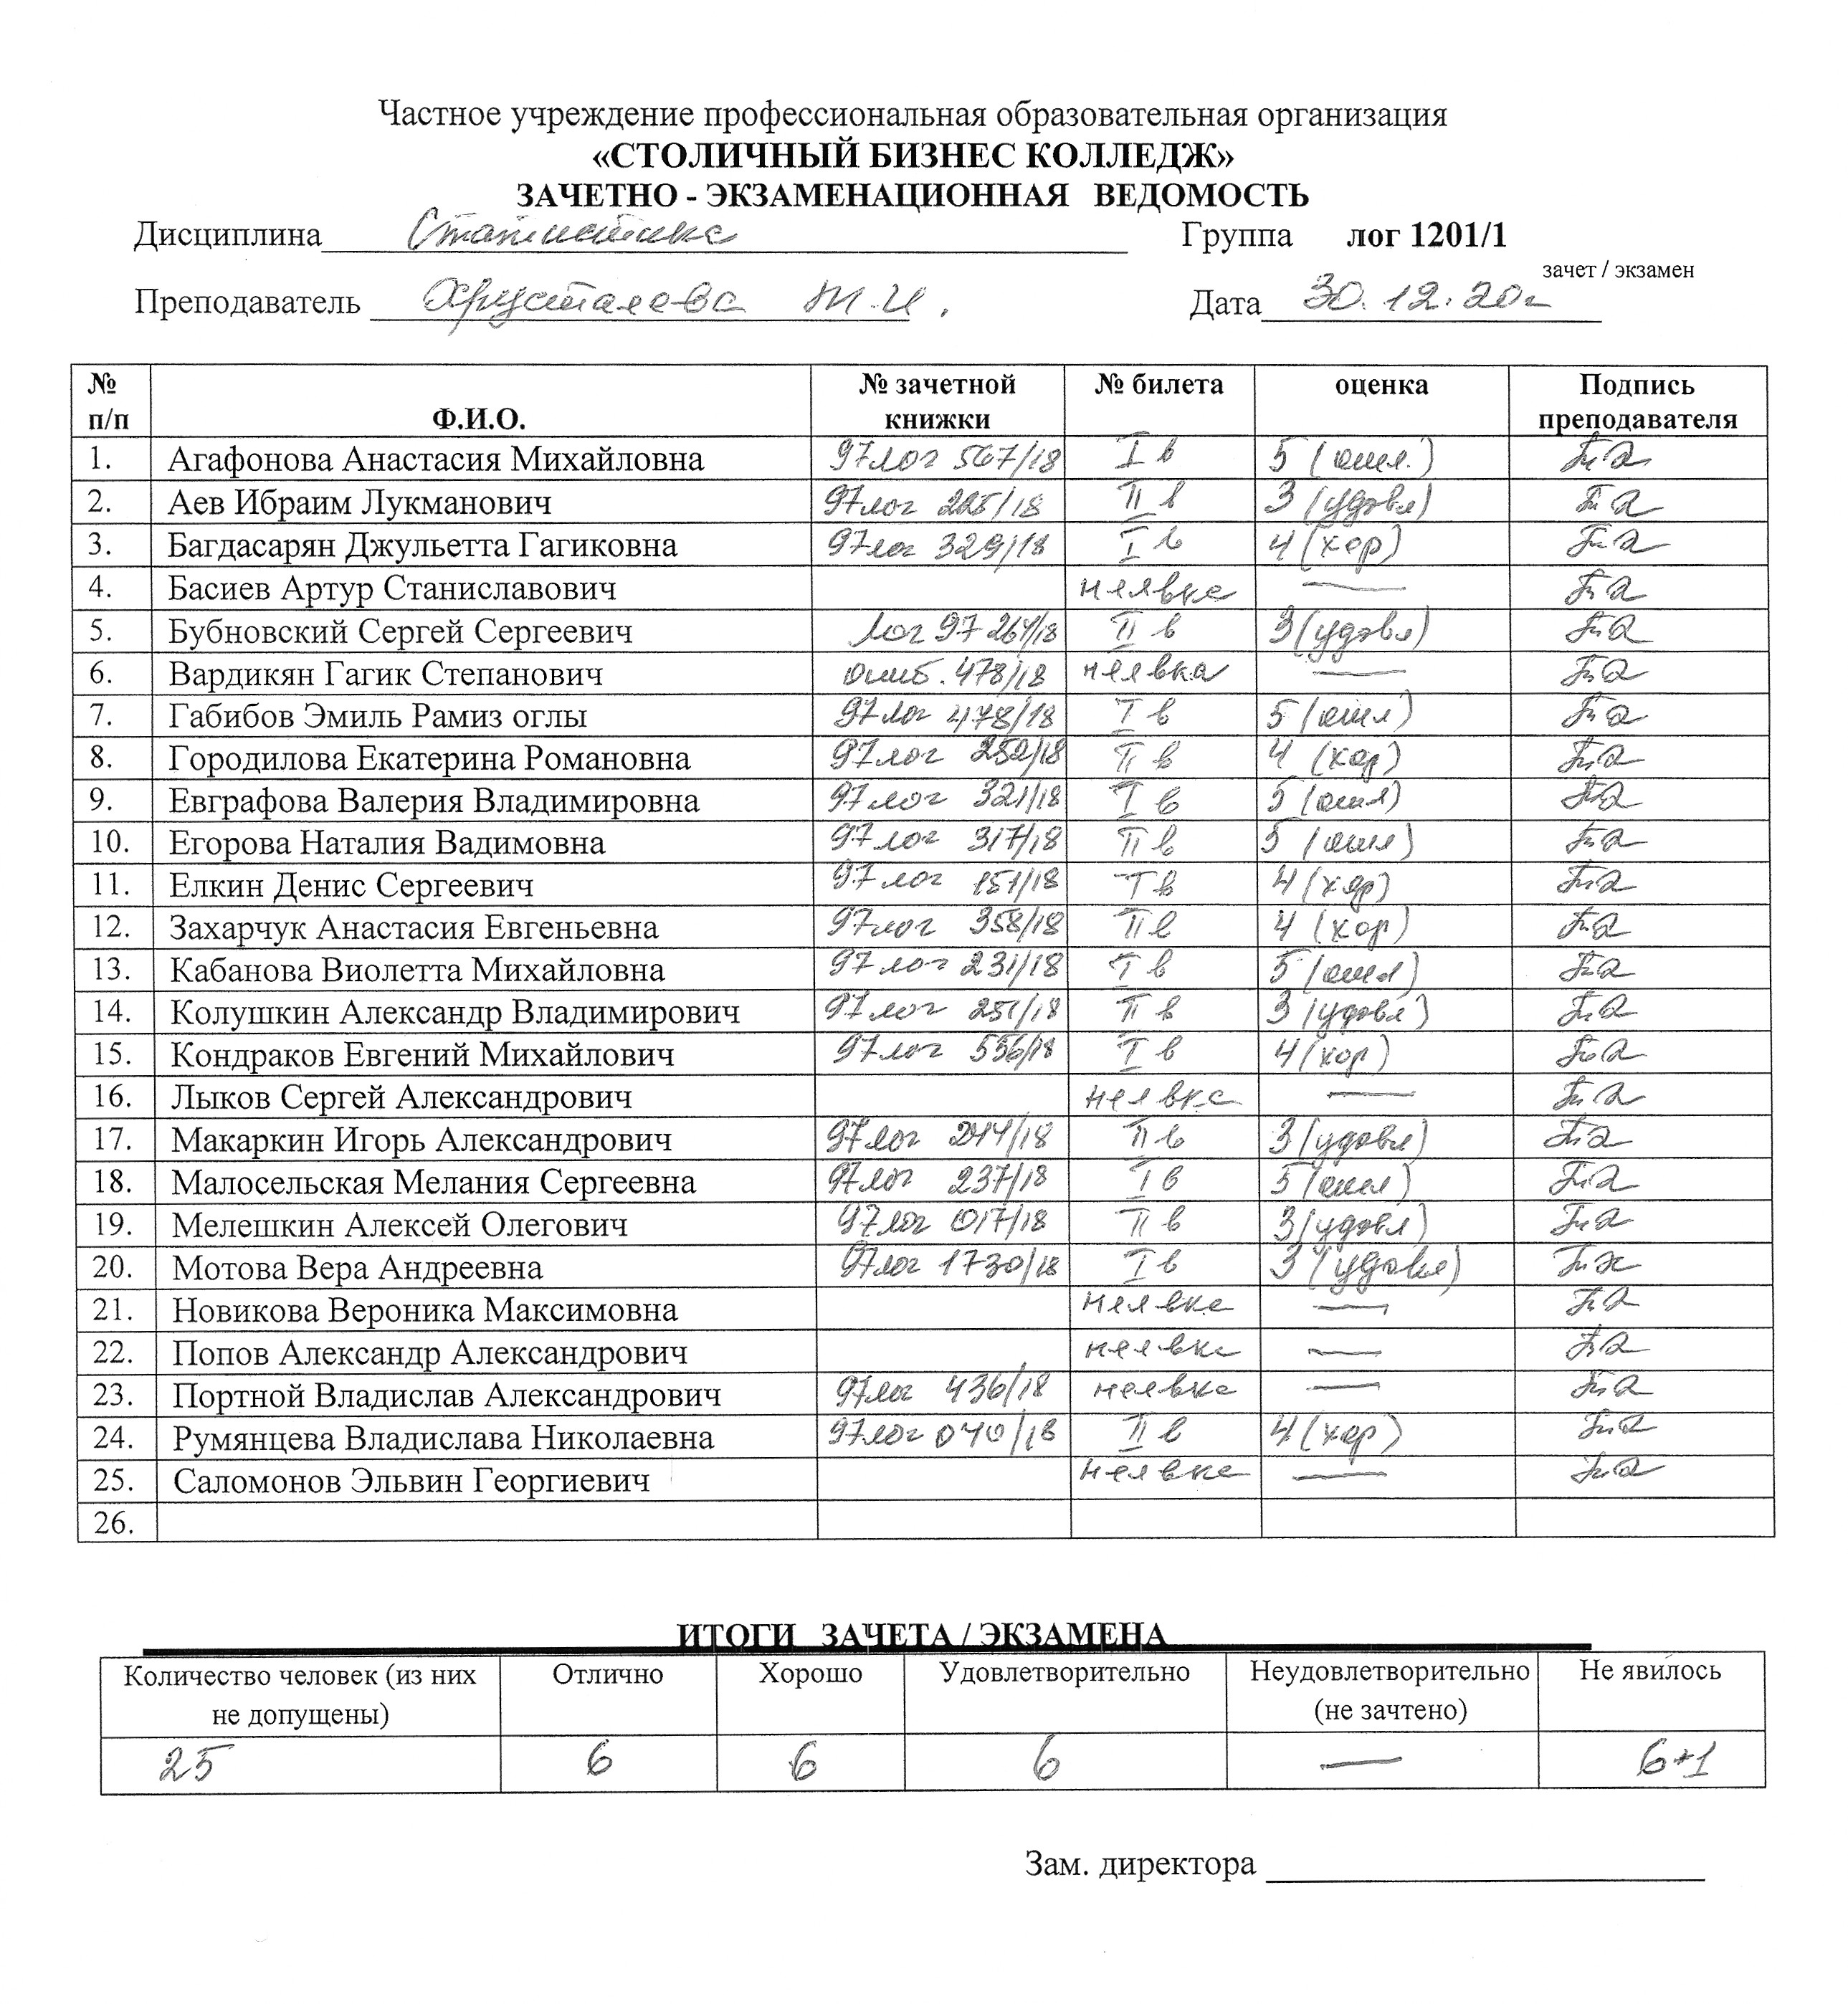 Частное учреждение профессиональная образовательная организация
«СТОЛИЧНЫЙ БИЗНЕС КОЛЛЕДЖ»
ЗАЧЕТНО - ЭКЗАМЕНАЦИОННАЯ ВЕДОМОСТЬ
Дисциплина Статистика Группа лог 1201/1
зачет / экзамен
Преподаватель Хрусталева Т.И. Дата 30.12.20г
№ п/п Ф.И.О. № зачетной книжки № билета оценка Подпись преподавателя
1. Агафонова Анастасия Михайловна 97лог 567/18 I в 5 (отл.)
2. Аев Ибраим Лукманович 97лог 225/18 II в 3 (удовл)
3. Багдасарян Джульетта Гагиковна 97лог 329/18 I в 4 (хор)
4. Басиев Артур Станиславович неявка —
5. Бубновский Сергей Сергеевич лог 97 264/18 II в 3 (удовл)
6. Вардикян Гагик Степанович ошиб. 478/18 неявка —
7. Габибов Эмиль Рамиз оглы 97лог 478/18 I в 5 (отл)
8. Городилова Екатерина Романовна 97лог 252/18 II в 4 (хор)
9. Евграфова Валерия Владимировна 97лог 321/18 I в 5 (отл)
10. Егорова Наталия Вадимовна 97лог 317/18 II в 5 (отл)
11. Елкин Денис Сергеевич 97лог 151/18 I в 4 (хор)
12. Захарчук Анастасия Евгеньевна 97лог 358/18 II в 4 (хор)
13. Кабанова Виолетта Михайловна 97лог 231/18 I в 5 (отл)
14. Колушкин Александр Владимирович 97лог 251/18 II в 3 (удовл)
15. Кондраков Евгений Михайлович 97лог 556/18 I в 4 (хор)
16. Лыков Сергей Александрович неявка —
17. Макаркин Игорь Александрович 97лог 244/18 II в 3 (удовл)
18. Малосельская Мелания Сергеевна 97лог 237/18 I в 5 (отл)
19. Мелешкин Алексей Олегович 97лог 017/18 II в 3 (удовл)
20. Мотова Вера Андреевна 97лог 1730/18 I в 3 (удовл)
21. Новикова Вероника Максимовна неявка —
22. Попов Александр Александрович неявка —
23. Портной Владислав Александрович 97лог 436/18 неявка —
24. Румянцева Владислава Николаевна 97лог 040/18 II в 4 (хор)
25. Саломонов Эльвин Георгиевич неявка —
26.
ИТОГИ ЗАЧЕТА / ЭКЗАМЕНА
Количество человек (из них не допущены) Отлично Хорошо Удовлетворительно Неудовлетворительно (не зачтено) Не явилось
25 6 6 6 — 6+1
Зам. директора